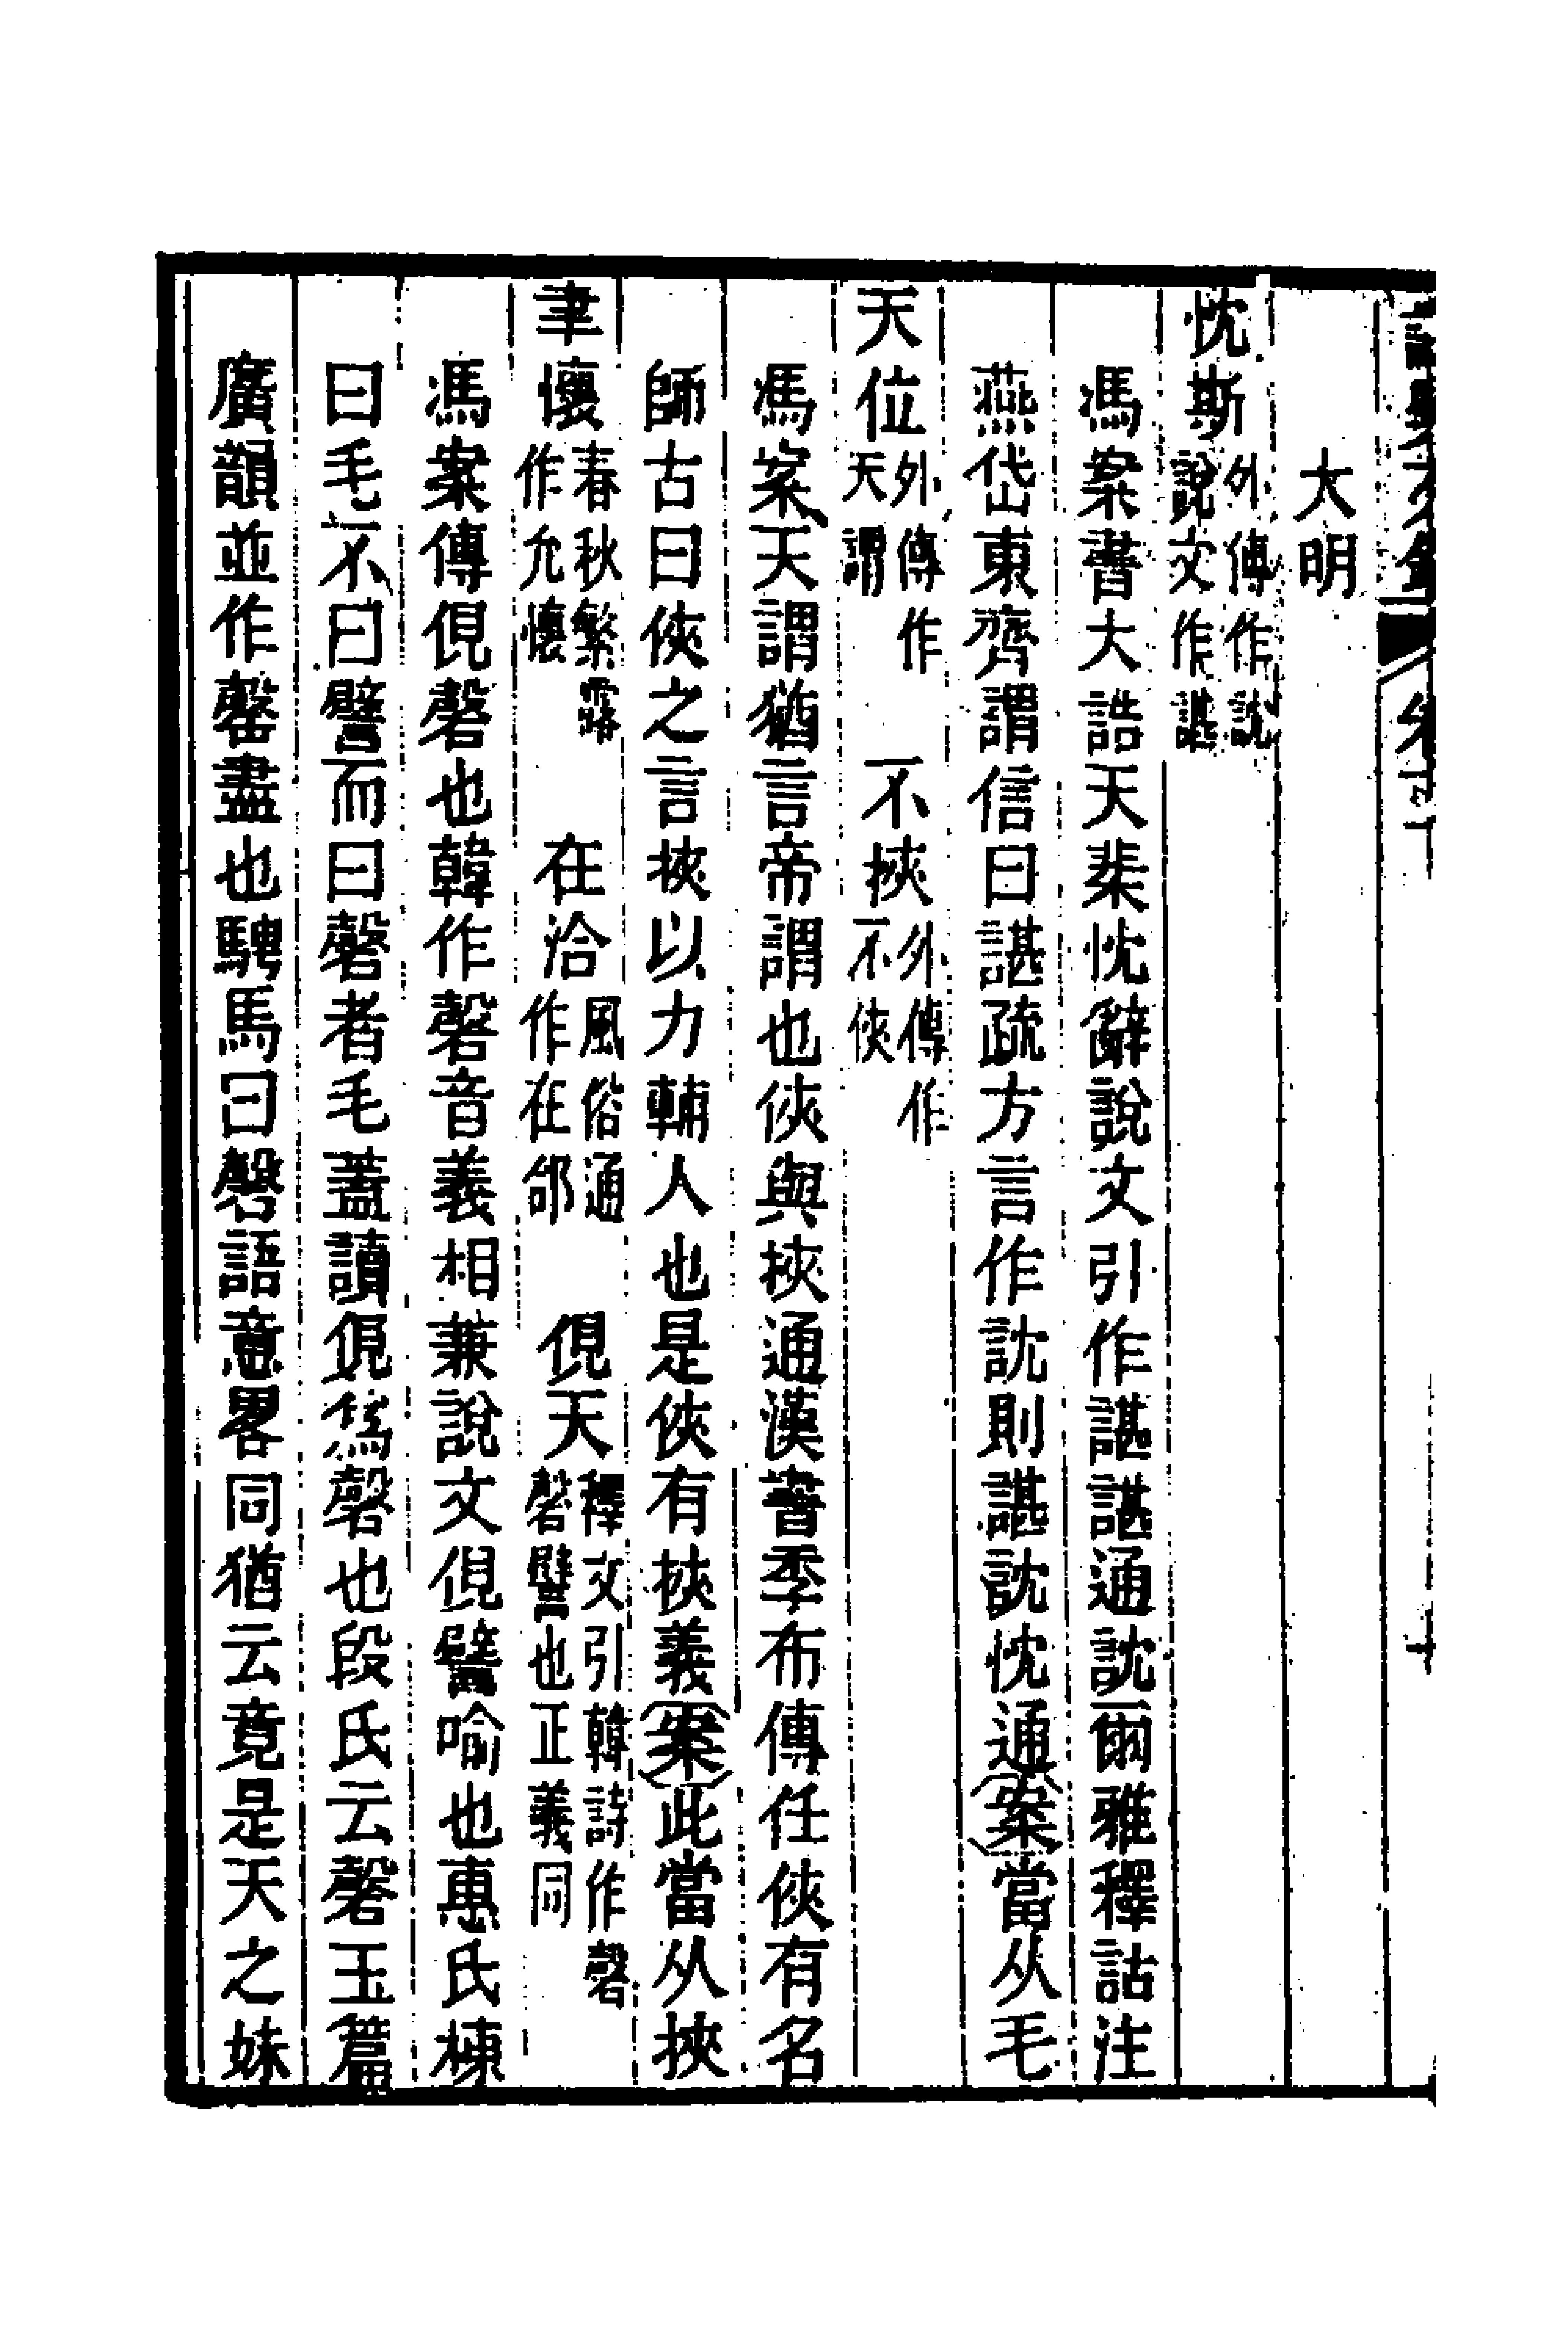 大明
忱斯外傳作訦說文作諶
馮案書大誥天棐忱辭說文引作諶諶通訦爾雅釋詁注
燕岱東齊謂信曰諶疏方言作訦則諶訦忱通案當从毛
天位外傳作天謂 不挾外傳作不俠
馮案天謂猶言帝謂也俠與挾通漢書季布傳任俠有名
師古曰俠之言挾以力輔人也是俠有挾義案此當从挾
聿懷春秋繁露作允懷 在洽風俗通作在郃 俔天釋文引韓詩作磬磬譬也正義同
馮案傳俔磬也韓作磬音義相兼說文俔譬喻也惠氏棟
曰毛不曰譬而曰磬者毛蓋讀俔爲磬也段氏云磬玉篇
廣韻並作罄盡也騁馬曰磬語意畧同猶云竟是天之妹